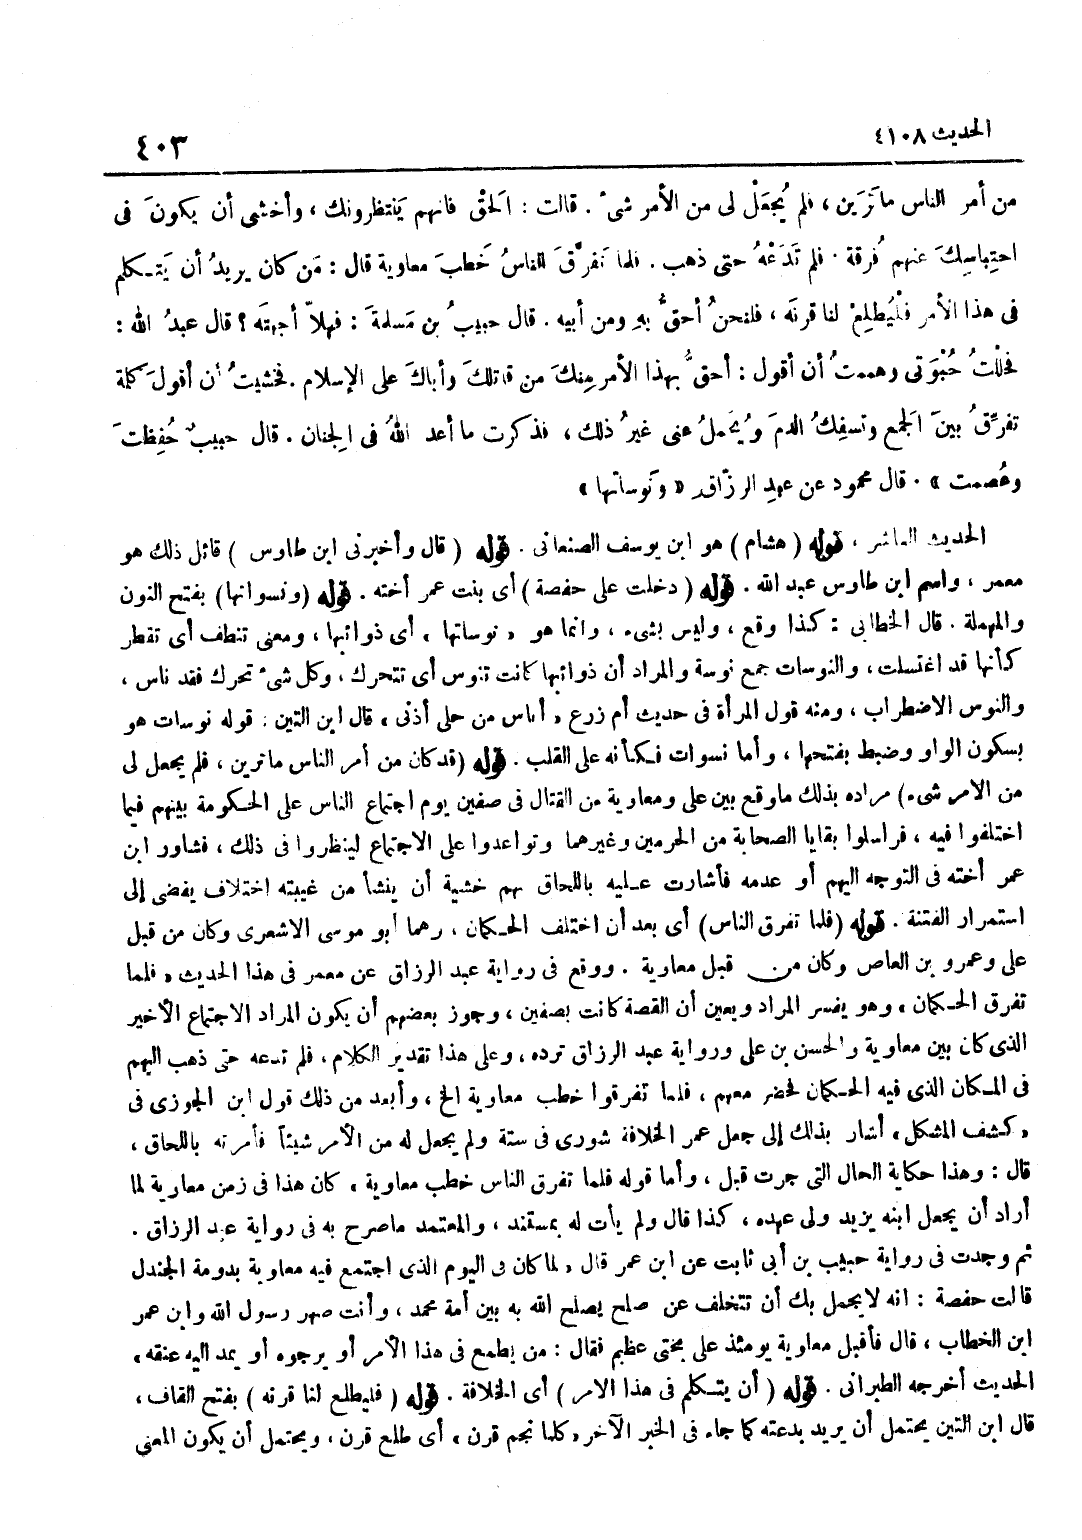 الحديث ٤١٠٨
٤٠٣
من أمر الناس ما تَرَين ، فلم يُجعَلْ لى من الأمر شىءٌ . قالت : الحَقْ فانهم يَنتظرونك ، وأخشى أن يكونَ فى
احتِباسِكَ عنهم فُرقة . فلم تَدَعْهُ حتى ذهب . فلما تَفرَّقَ الناسُ خَطبَ معاوية قال : مَن كان يريدُ أن يَتـكلم
فى هذا الأمر فلْيُطلِعْ لنا قرنَه ، فلنحنُ أحقُّ بهِ ومن أبيه . قال حبيبُ بن مَسلمةَ : فهلاّ أجبتَه ؟ قال عبدُ الله :
فحللْتُ حُبْوَتى وهممتُ أن أقول : أحقُّ بهذا الأمر مِنكَ من قاتلكَ وأباكَ على الإسلام . فخشيتُ أن أقولَ كلمة
تفرِّقُ بينَ الجمع وتسفِكُ الدمَ ويُحمَلُ عنى غيرُ ذلك ، فذكرت ما أعد اللهُ فى الجِنان . قال حبيبٌ حُفِظتَ
وعُصمت » . قال محمود عن عبدِ الرزّاق « ونَوساتها »
الحديث العاشر ، قوله ( هشام ) هو ابن يوسف الصنعانى . قوله ( قال وأخبرنى ابن طاوس ) قائل ذلك هو
معمر ، واسم ابن طاوس عبد الله . قوله ( دخلت على حفصة ) أى بنت عمر أخته . قوله ( ونسواتها ) بفتح النون
والمهملة . قال الخطابى : كذا وقع ، وليس بشىء ، وانما هو « نوساتها » أى ذوائبها ، ومعنى تنطف أى تقطر
كأنها قد اغتسلت ، والنوسات جمع نوسة والمراد أن ذوائبها كانت تنوس أى تتحرك ، وكل شىء تحرك فقد ناس ،
والنوس الاضطراب ، ومنه قول المرأة فى حديث أم زرع « أناس من حلى أذنى » قال ابن التين : قوله نوسات هو
بسكون الواو وضبط بفتحها ، وأما نسوات فـكأنه على القلب . قوله (قد كان من أمر الناس ما ترين ، فلم يجعل لى
من الامر شىء) مراده بذلك ما وقع بين على ومعاوية من القتال فى صفين يوم اجتماع الناس على الحـكومة بينهم فيما
اختلفوا فيه ، فراسلوا بقايا الصحابة من الحرمين وغيرهما وتواعدوا على الاجتماع لينظروا فى ذلك ، فشاور ابن
عمر أخته فى التوجه اليهم أو عدمه فأشارت عـليه باللحاق بهم خشية أن ينشأ من غيبته اختلاف يفضى إلى
استمرار الفتنة . قوله (فلما تفرق الناس) أى بعد أن اختلف الحـكمان ، وهما أبو موسى الاشعرى وكان من قبل
على وعمرو بن العاص وكان من قبل معاوية . ووقع فى رواية عبد الرزاق عن معمر فى هذا الحديث « فلما
تفرق الحـكمان » وهو يفسر المراد ويعين أن القصة كانت بصفين ، وجوز بعضهم أن يكون المراد الاجتماع الأخير
الذى كان بين معاوية والحسن بن على ورواية عبد الرزاق ترده ، وعلى هذا تقدير الكلام ، فلم تدعه حتى ذهب اليهم
فى المـكان الذى فيه الحـكمان فحضر معهم ، فلما تفرقوا خطب معاوية الخ ، وأبعد من ذلك قول ابن الجوزى فى
« كشف المشكل » أشار بذلك إلى جعل عمر الخلافة شورى فى ستة ولم يجعل له من الأمر شيئاً فأمرته باللحاق ،
قال : وهذا حكاية الحال التى جرت قبل ، وأما قوله فلما تفرق الناس خطب معاوية » كان هذا فى زمن معاوية لما
أراد أن يجعل ابنه يزيد ولى عهده ، كذا قال ولم يأت له بمستند ، والمعتمد ما صرح به فى رواية عبد الرزاق .
ثم وجدت فى رواية حبيب بن أبى ثابت عن ابن عمر قال « لما كان فى اليوم الذى اجتمع فيه معاوية بدومة الجندل
قالت حفصة : انه لا يجمل بك أن تتخلف عن صلح يصلح الله به بين أمة محمد ، وأنت صهر رسول الله وابن عمر
ابن الخطاب ، قال فأقبل معاوية يومئذ على بختى عظيم فقال : من يطمع فى هذا الأمر أو يرجوه أو يمد اليه عنقه »
الحديث أخرجه الطبرانى . قوله ( أن يتـكلم فى هذا الامر ) أى الخلافة . قوله ( فليطلع لنا قرنه ) بفتح القاف ،
قال ابن التين يحتمل أن يريد بدعته كما جاء فى الخبر الآخر « كلما نجم قرن » أى طلع قرن ، ويحتمل أن يكون المعنى